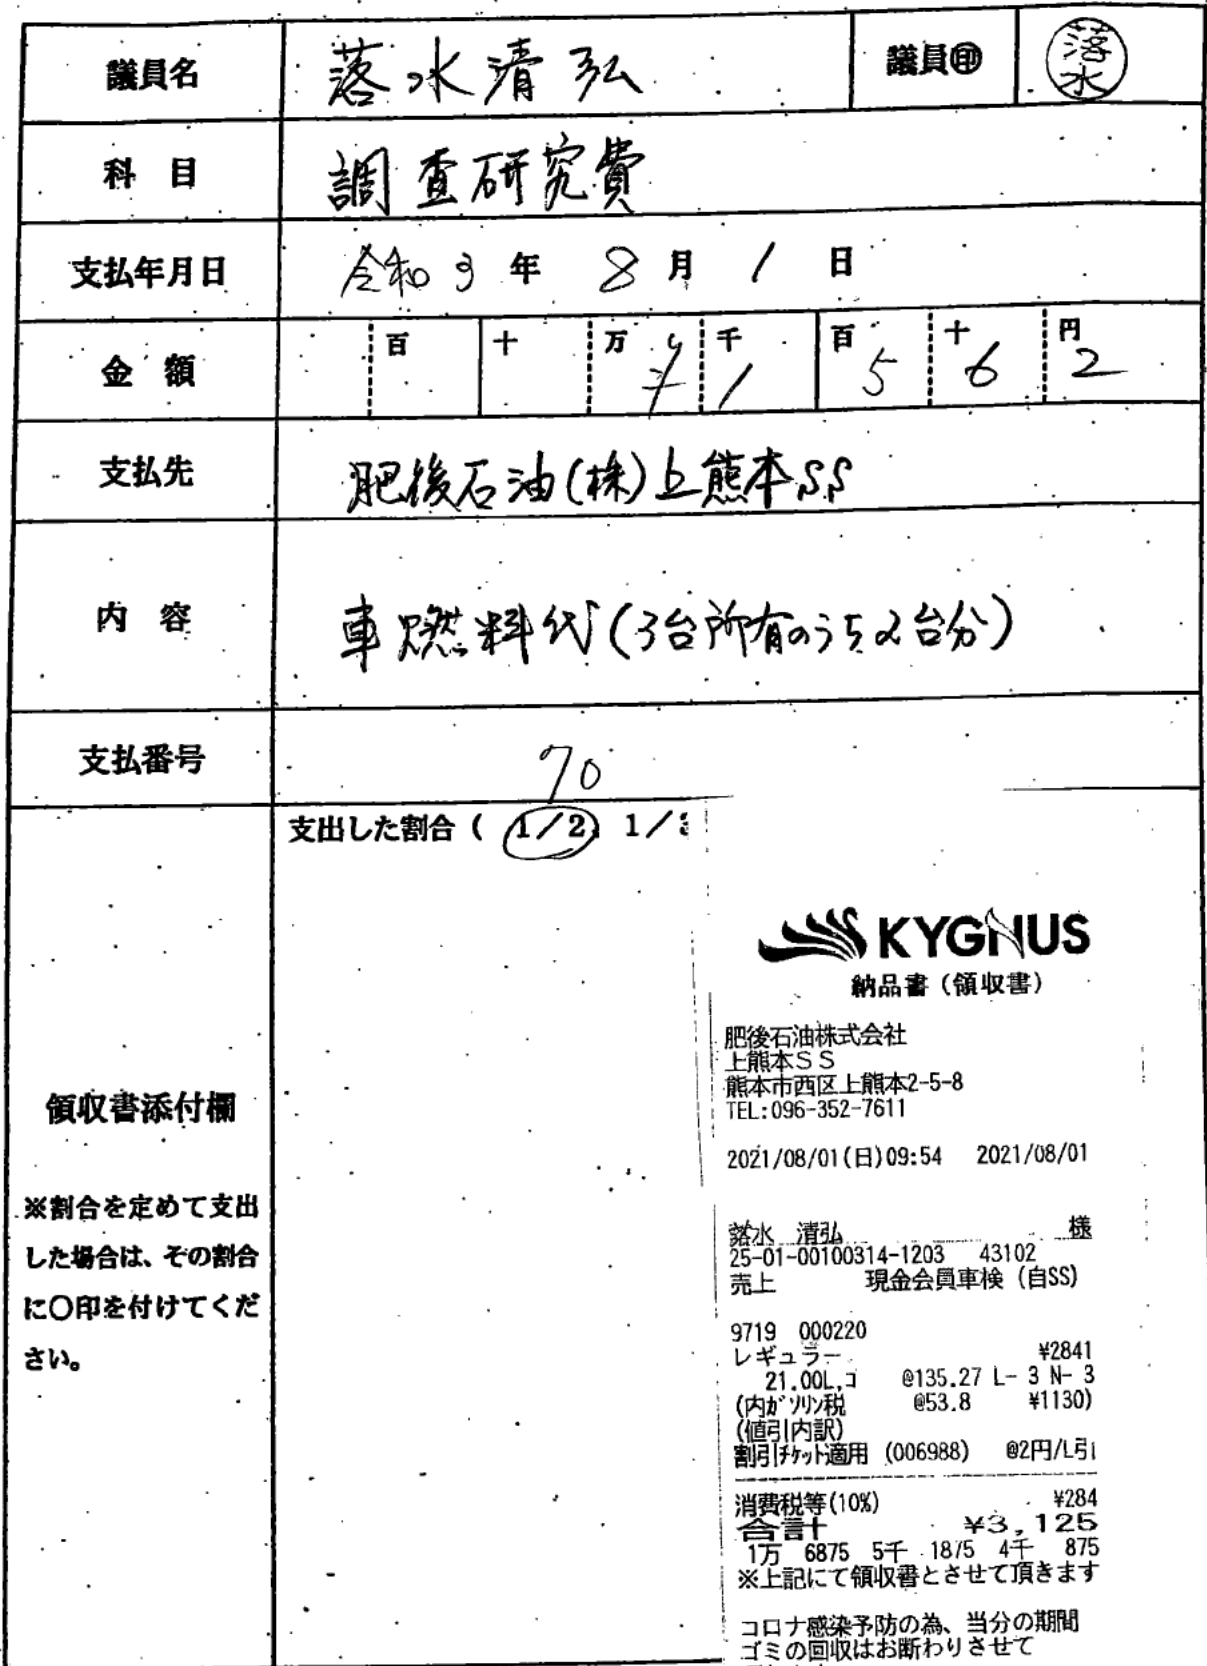 議員名 落水清弘 議員㊞ 落水
科目 調査研究費
支払年月日 令和3年8月1日
金額 百 十 万 千 百 十 円
¥1562
支払先 肥後石油(株)上熊本SS
内容 車燃料代(3台所有のうち2台分)
支払番号 70
支出した割合( 1/2 1/
領収書添付欄
※割合を定めて支出
した場合は、その割合
に○印を付けてくだ
さい。
KYGNUS
納品書(領収書)
肥後石油株式会社
上熊本SS
熊本市西区上熊本2-5-8
TEL:096-352-7611
2021/08/01(日)09:54 2021/08/01
落水 清弘 様
25-01-00100314-1203 43102
売上 現金会員車検(自SS)
9719 000220
レギュラー ¥2841
21.00L,コ @135.27 L- 3 N- 3
(内ガソリン税 @53.8 ¥1130)
(値引内訳)
割引チケット適用 (006988) @2円/L引
消費税等(10%) ¥284
合計 ¥3,125
1万 6875 5千 1875 4千 875
※上記にて領収書とさせて頂きます
コロナ感染予防の為、当分の期間
ゴミの回収はお断わりさせて